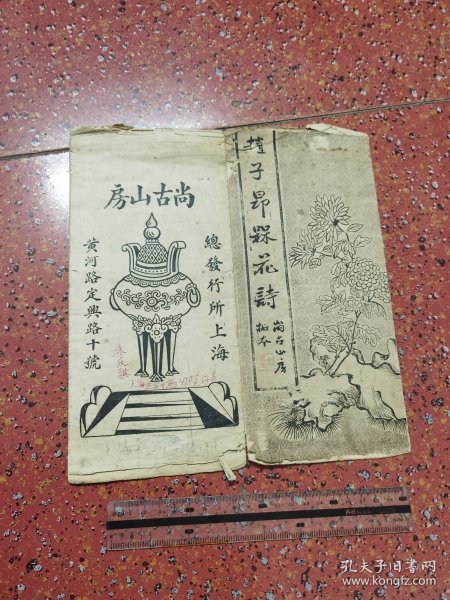 趙子昂蘇花詩
尚古山房
拓本
尚古山房
總發行所上海
黃河路定興路十號
孔夫子旧书网
www.kongfz.com